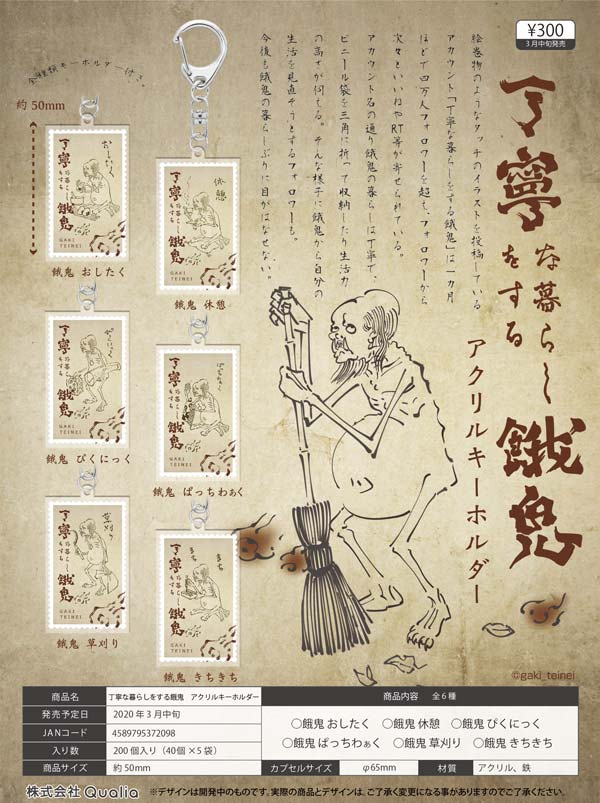 ¥300
3月中旬発売
丁寧な暮らしをする餓鬼
アクリルキーホルダー
絵巻物のようなタッチのイラストを投稿している
アカウント「丁寧な暮らしをする餓鬼」は一カ月
ほどで四万人フォロワーを超え、フォロワーから
次々といいねやRT等が寄せられている。
アカウント名の通り餓鬼の暮らしは丁寧で、
ビニール袋を三角に折って収納したり生活力
の高さが伺える。そんな様子に餓鬼から自分の
生活を見直そうとするフォロワーも。
今後も餓鬼の暮らしぶりに目がはなせない。
全種類キーホルダー付き。
約50mm
おしたく
丁寧な暮らしをする餓鬼
GAKI
TEINEI
餓鬼 おしたく
休憩
丁寧な暮らしをする餓鬼
GAKI
TEINEI
餓鬼 休憩
ぴくにっく
丁寧な暮らしをする餓鬼
GAKI
TEINEI
餓鬼 ぴくにっく
ぱっちわぁく
丁寧な暮らしをする餓鬼
GAKI
TEINEI
餓鬼 ぱっちわぁく
草刈り
丁寧な暮らしをする餓鬼
GAKI
TEINEI
餓鬼 草刈り
きちきち
丁寧な暮らしをする餓鬼
GAKI
TEINEI
餓鬼 きちきち
©gaki_teinei
商品名 丁寧な暮らしをする餓鬼 アクリルキーホルダー
発売予定日 2020年3月中旬
JANコード 4589795372098
入り数 200個入り（40個×5袋）
商品サイズ 約50mm
商品内容 全6種
○餓鬼 おしたく ○餓鬼 休憩 ○餓鬼 ぴくにっく
○餓鬼 ぱっちわぁく ○餓鬼 草刈り ○餓鬼 きちきち
カプセルサイズ φ65mm 材質 アクリル、鉄
株式会社 Qualia ※デザインは開発中のものです。実際の商品とデザインは、ご了承く変更になる事がありますのでご了承ください。